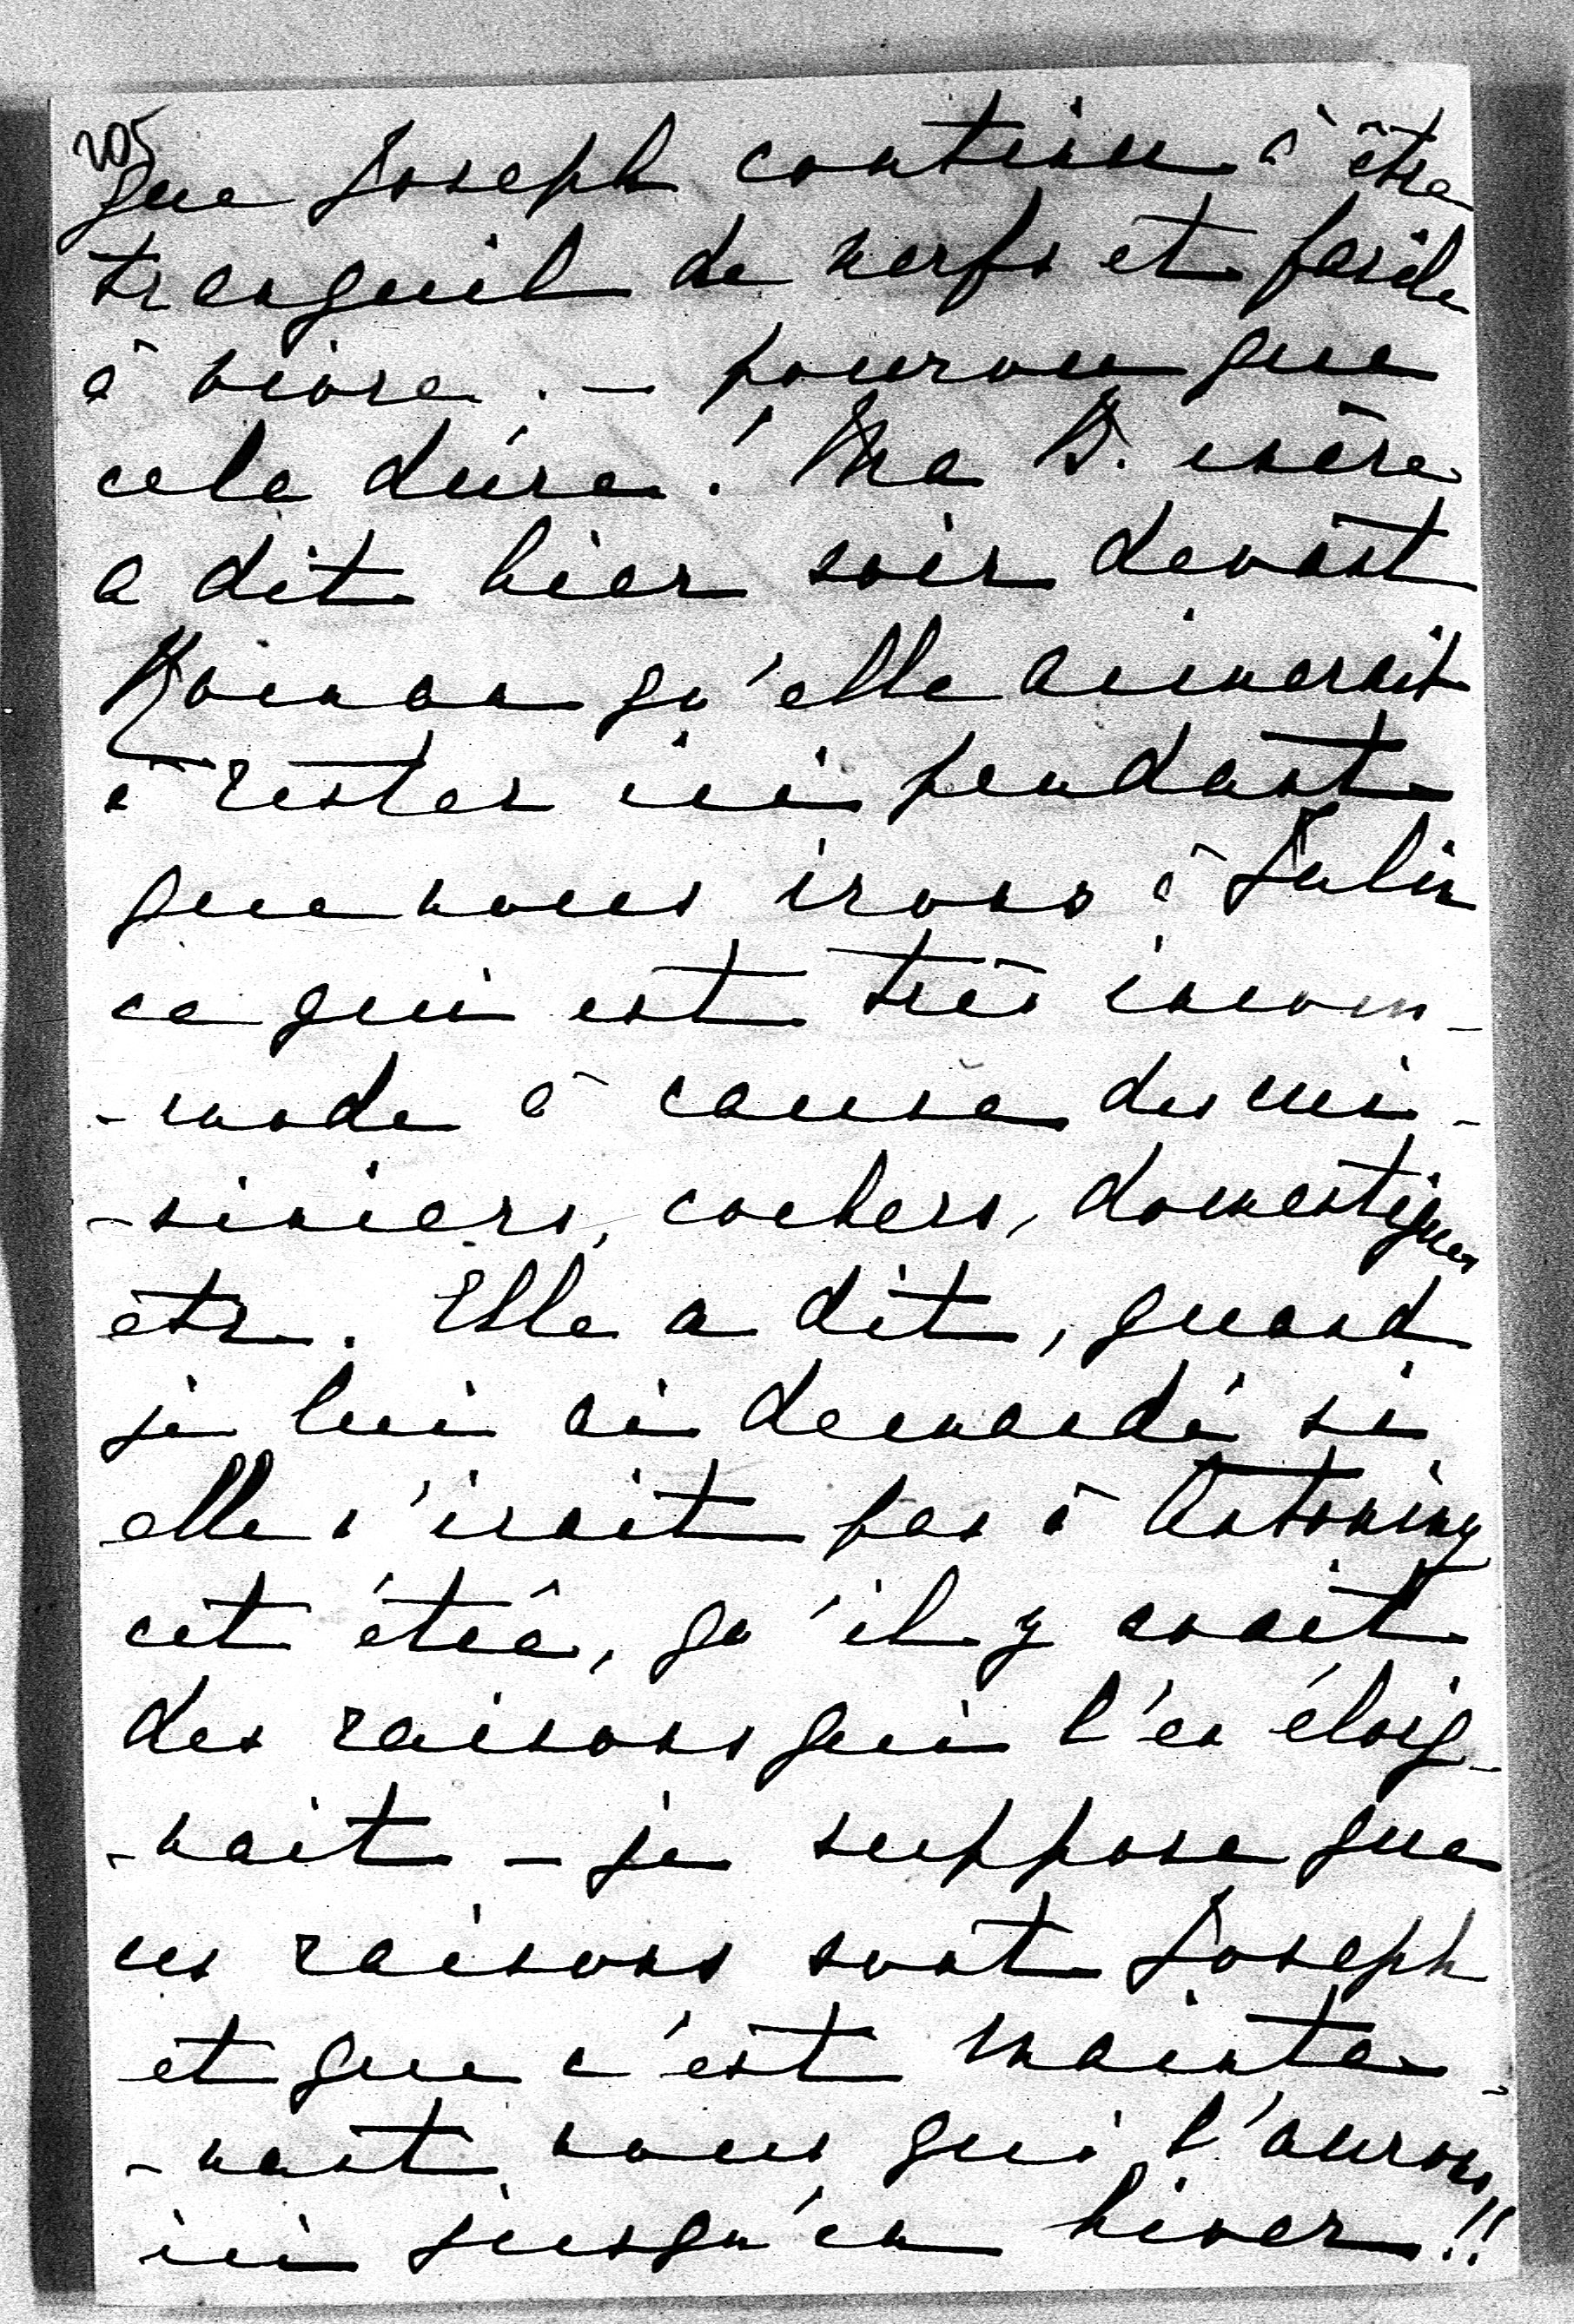 205
que Joseph continu à être
tranquil de nerfs et facile
à vivre. — pourvu que
cela dure! Ma B. mère
a dit hier soir devant
qu'elle aimerait
à rester ici pendant
que nous irons à
ce qui est très incom-
-mode à cause des cui-
-siniers, cochers, domestiques
etc. Elle a dit, quand
je lui ai demandé si
elle n'irait pas à Antoniny
cet été, qu'il y avait
des raisons qui l'en éloig-
-nait — je suppose que
ces raisons sont Joseph
et que c'est mainte-
-nant nous qui l'aurons
ici jusqu'en hiver!!